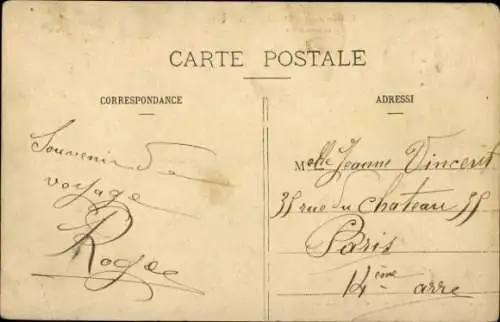 CARTE POSTALE
CORRESPONDANCE
ADRESSI
Souvenir de
voyage
Melle Jeanne Vincent
35 rue du chateau 35
Paris
14ème arre